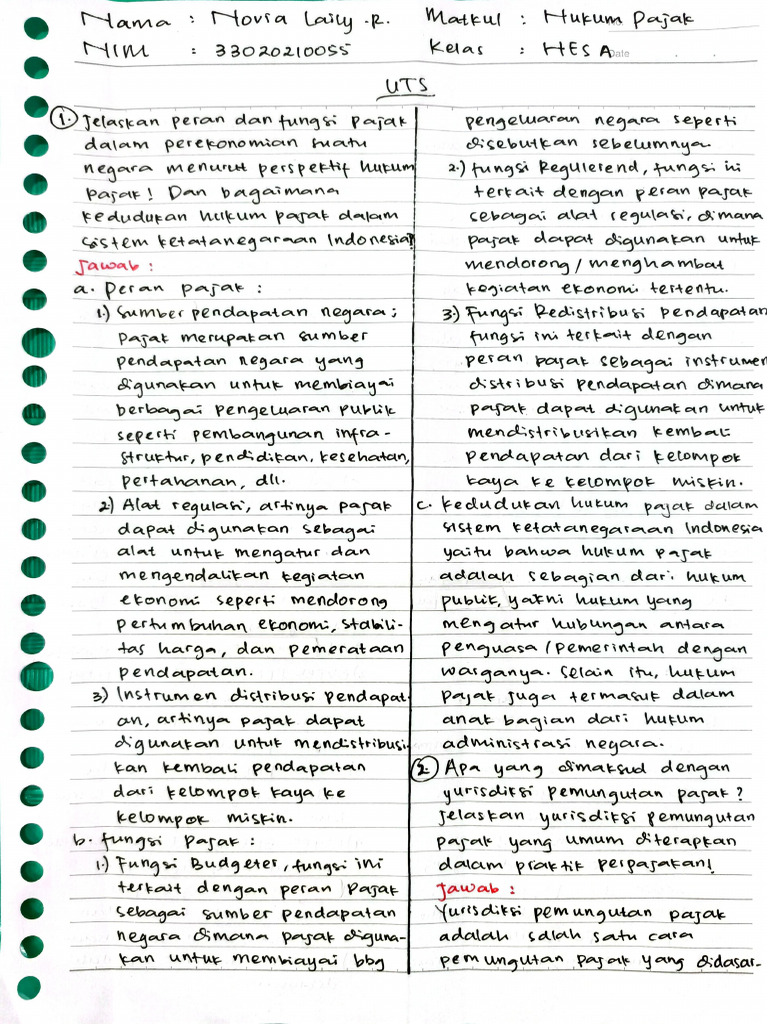 Nama : Novia Laily .R.
Matkul : Hukum Pajak
NIM : 33020210055
Kelas : HES A
Date
UTS
1. Jelaskan peran dan fungsi pajak
dalam perekonomian suatu
negara menurut perspektif hukum
pajak! Dan bagaimana
kedudukan hukum pajak dalam
sistem ketatanegaraan Indonesia?
Jawab :
a. Peran pajak :
1.) Sumber pendapatan negara;
pajak merupakan sumber
pendapatan negara yang
digunakan untuk membiayai
berbagai pengeluaran publik
seperti pembangunan infra-
struktur, pendidikan, kesehatan,
pertahanan, dll.
2) Alat regulasi, artinya pajak
dapat digunakan sebagai
alat untuk mengatur dan
mengendalikan kegiatan
ekonomi seperti mendorong
pertumbuhan ekonomi, stabili-
tas harga, dan pemerataan
pendapatan.
3) Instrumen distribusi pendapat-
an, artinya pajak dapat
digunakan untuk mendistribusi-
kan kembali pendapatan
dari kelompok kaya ke
kelompok miskin.
b. fungsi pajak :
1.) Fungsi Budgeter, fungsi ini
terkait dengan peran pajak
sebagai sumber pendapatan
negara dimana pajak diguna-
kan untuk membiayai bbg
pengeluaran negara seperti
disebutkan sebelumnya.
2.) fungsi Regulerend, fungsi ini
terkait dengan peran pajak
sebagai alat regulasi, dimana
pajak dapat digunakan untuk
mendorong/menghambat
kegiatan ekonomi tertentu.
3.) Fungsi Redistribusi pendapatan
fungsi ini terkait dengan
peran pajak sebagai instrumen
distribusi pendapatan dimana
pajak dapat digunakan untuk
mendistribusikan kembali
pendapatan dari kelompok
kaya ke kelompok miskin.
c. kedudukan hukum pajak dalam
sistem ketatanegaraan Indonesia
yaitu bahwa hukum pajak
adalah sebagian dari hukum
publik, yakni hukum yang
mengatur hubungan antara
penguasa/pemerintah dengan
warganya. Selain itu, hukum
pajak juga termasuk dalam
anak bagian dari hukum
administrasi negara.
2. Apa yang dimaksud dengan
yurisdiksi pemungutan pajak?
Jelaskan yurisdiksi pemungutan
pajak yang umum diterapkan
dalam praktik perpajakan!
Jawab :
Yurisdiksi pemungutan pajak
adalah salah satu cara
pemungutan pajak yang didasar-